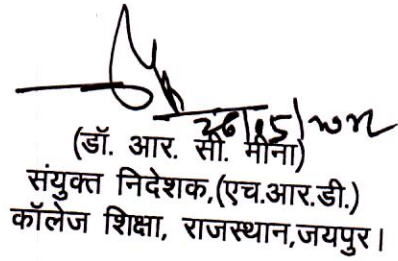 (डॉ. आर. सी. मीना)
संयुक्त निदेशक,(एच.आर.डी.)
कॉलेज शिक्षा, राजस्थान,जयपुर।